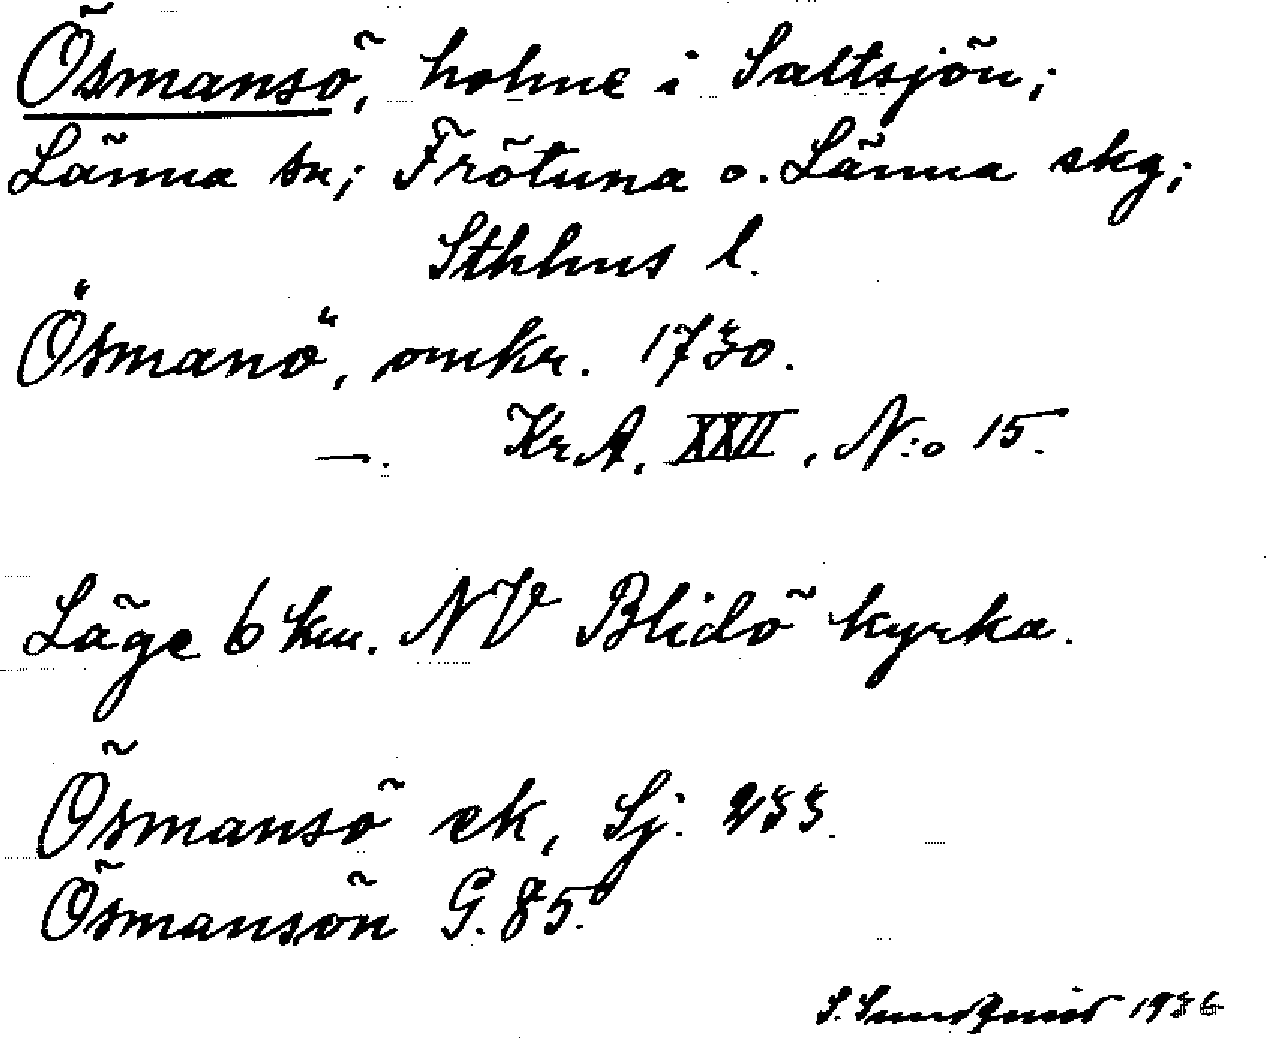 Ösmansö, holme i Saltsjön;
Länna sn; Frötuna o. Länna skg;
Sthlms l.
Ösmanö, omkr. 1730.
—. Kr.A. XXII, N:o 15.
Läge 6 km. NV Blidö kyrka.
Ösmansö ek, Sj. 233.
Ösmansön G. 85.
S. Sundquist 1936